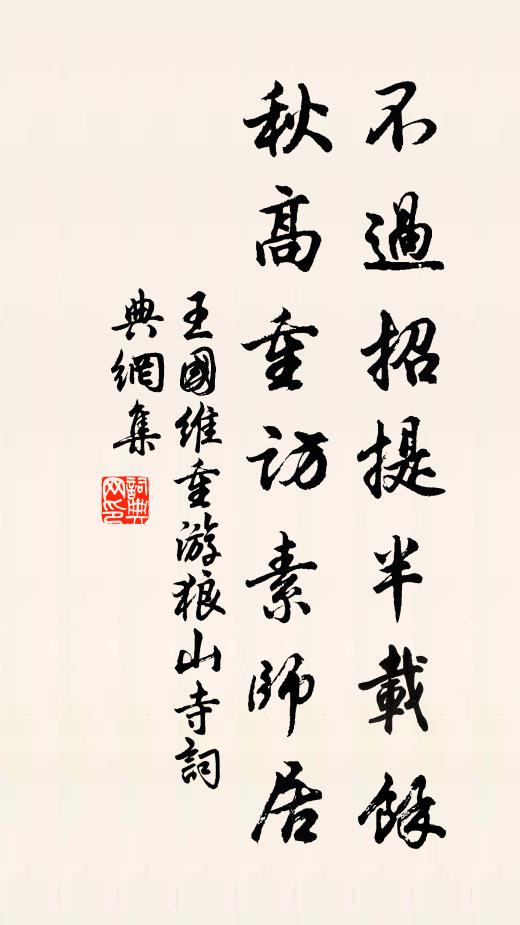 不過招提半載餘
秋高重訪素師居
王國維重游狼山寺詞
典網集
詞典网印